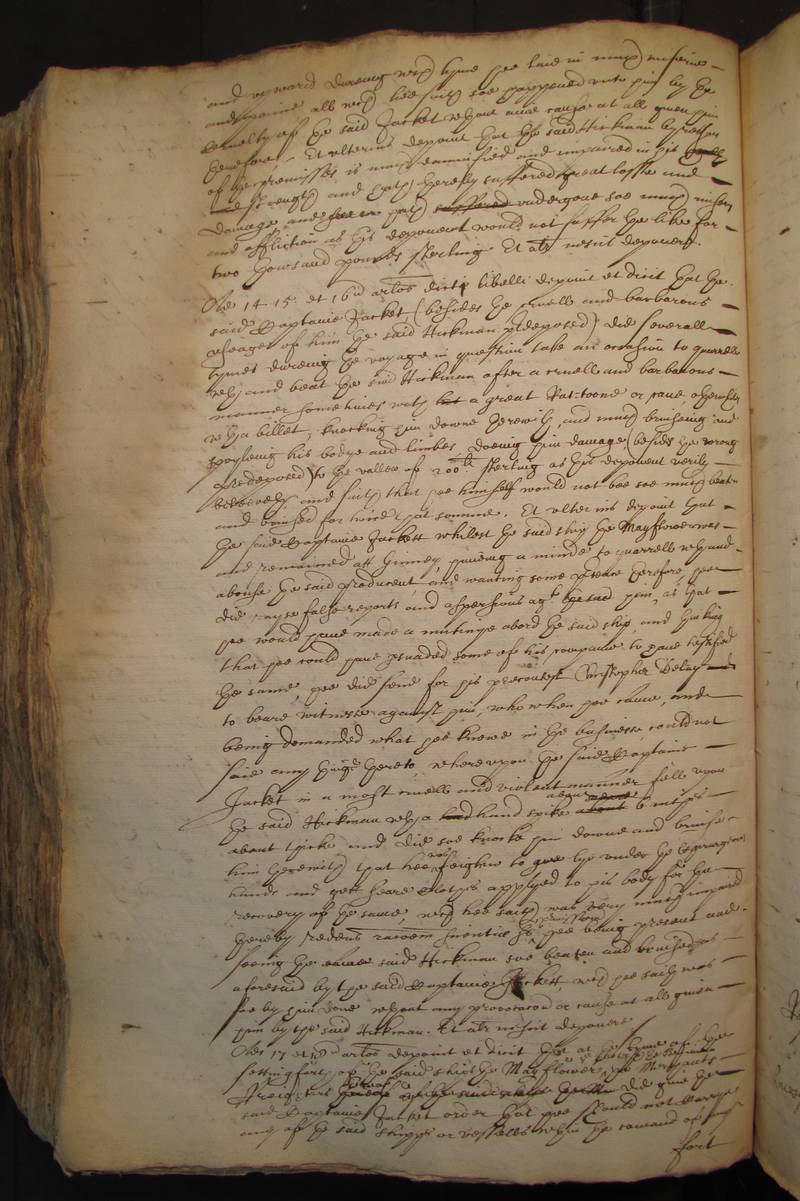 and upward dureing w:ch tyme hee laid in much miserie
and paine all w:ch hee saith soe happened unto him by the
cruelty of the said Jacket w:thout anie cause at all given him
therefore, Et ulterius deponit that the said Hickman by reason
of the premisses is much damnified and impaired in his
strength and hath thereby suffered great losse and
damage, and hath undergone soe much misery
and affliction as this deponent would not suffer the like for
two thousand pounds sterling. Et alr nescit deponere.
Ad 14 15. et 16 artos dicti libelli deponit et dicit that the
said Captaine Jacket, (besides the cruell and barbarous
usages of him the said Hickman predeposed) did severall
tymes dureing the voyage in question take an occasion to quarrell
w:th and beat the said Hickman after a cruell and barbarous
manner sometimes with a great Rattoone or cane otherwhiles
w:th a billet, knocking him downe therewith, and much bruiseing and
spoyleing his bodye and limbes, doeing him damage (besides the wrong
predeposed) to the vallew of 200:li sterling as this deponent verily
beleeveth, and saith that hee himself would not bee soe much beaten
and bruised for twice that somme. Et ulterius deponit that
the said Captaine Jackett whilest the said ship the Mayflower was
and remained att Ginney, haveing a minde to quarrell w:th and
abuse the said producent, and wanting some pretence therefore, hee
did rayse false reports and aspersions ag:t him, as that
hee would have made a mutinye abord the said ship, and thinking
that hee could have perswaded some of his companie to have testified
the same, hee did send for his precontest Christopher Delay
to beare witnesse against him, who when hee came, and
being demanded what hee knewe in the businesse could not
saie any thinge thereto, whereupon the said Captaine
Jacket in a most cruell and violent manner fell upon
the said Hickman w:th a hand spike about 6 inches
about thicke and did soe knocke him downe and bruise
him therewith that hee was forced to goe lye under the Chirurgeons
hands and gett seare cloths applyed to his body for the
recovery of the same, w:ch hee saith was very much impaired
thereby redens rationem scientiae hee being present and
seeing the said Hickman soe beaten and bruised as
aforesaid by the said Captaine Jackett w:ch hee saith was
soe by him done w:thout any provocacion or cause at all given
him by the said Hickman. Et alr nescit deponere
Ad 17 et 18 artos deponit et dicit that at the tyme of the
setting forth of the said ship the Mayflower the Merchants
freighters did give the
said Captaine Jacket order that hee should not carrye
any of the said shipps or vessells w:thin the comand of any
fort